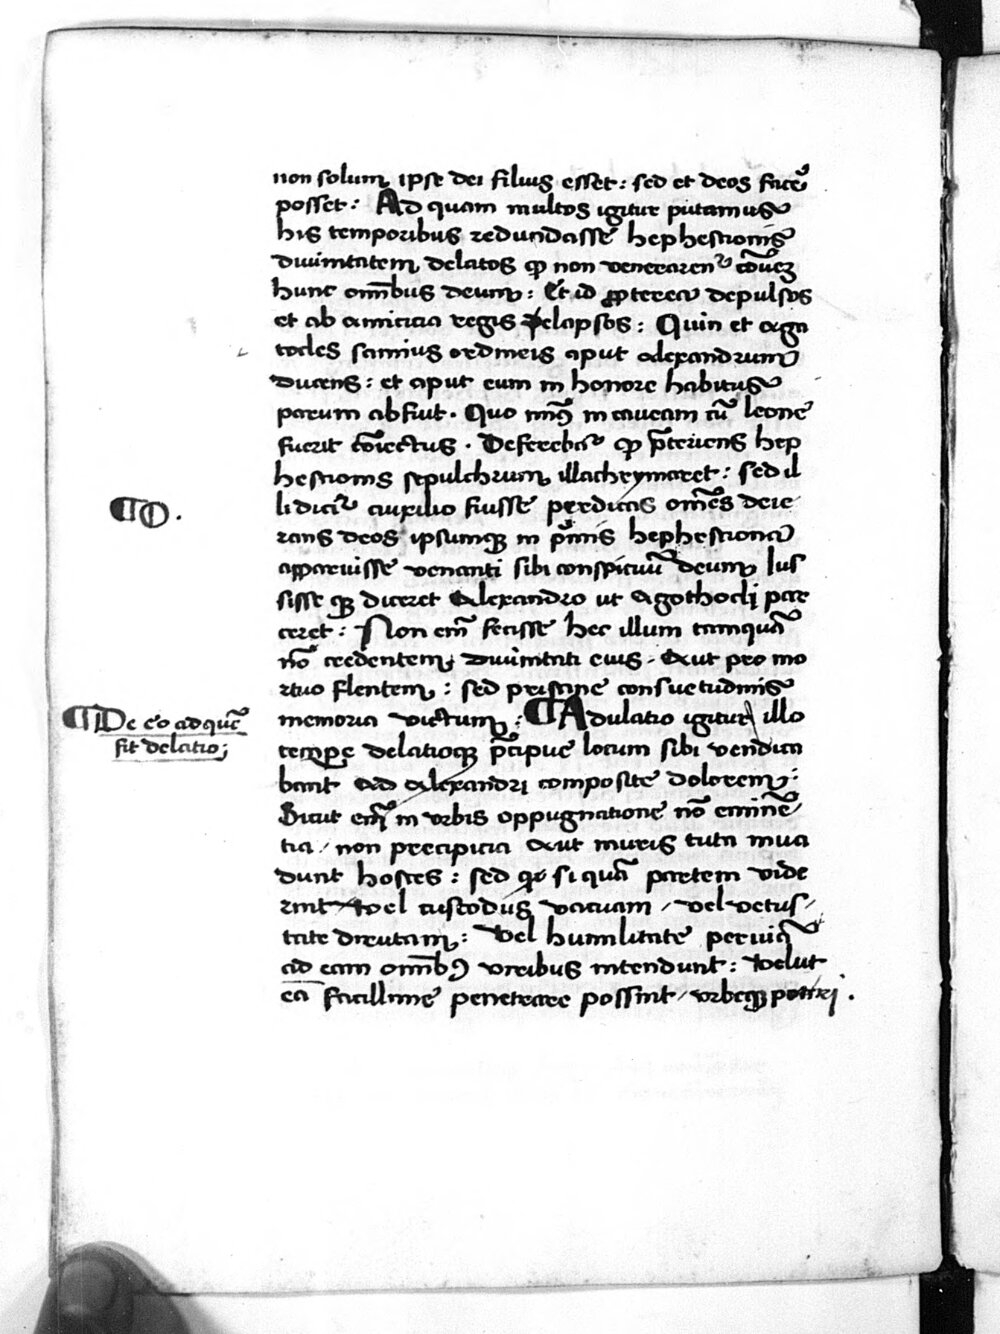 non solum ipse dei filius esset: sed et deos facē
posset: Ad quam multos igitur putamus
his temporibus redundasse hephestionis
diuinitatem delatos ꝙ non venerarenᷣ cōuez
hunc omībus deum: Et id ꝓpterea depulsos
et ab amicicia regis delapsos: Quin et aga
tocles samius ordineis aput alexandrum
ducens: et aput eum in honore habitus
parum abfuit. Quo minꝰ in caueam cū leone
fuerit cōiectus. Deferebaᷣ ꝙ p̄teriens hep
hestionis sepulchrum illachrymaret: sed il
li diciᷣ auxilio fuisse perdicas om̄es deie
rans deos ipsumqꝫ in p̄mis hephestiona
apparuisse venanti sibi conspicuū deum Ius
sisse qꝫ diceret Alexandro ut Agothocli par
ceret: Non em̄ fecisse hec illum tamquā
nō credentem diuinitati eius. Aut pro mo
rtuo flentem: sed pristine consuetudinis
memoria victum: ¶ Adulatio igitur illo
tempe delatioqꝫ p̄cipue locum sibi vendica
bant ad Alexandri composite dolorem:
Sicut em̄ in vrbis oppugnatione nō eminē
tia / non precipicia aut muris tuta inua
dunt hostes: sed qo si quā partem vide
rint vel custodiis vacuam / vel vetus/
tate dirutam: Vel humilitate peruiā
ad eam omībꝰ viribus intendunt: velut
ea facillime penetrare possint / vrbeqꝫ potiri.
¶ O.
¶ De eo ad quē
fit delatio;